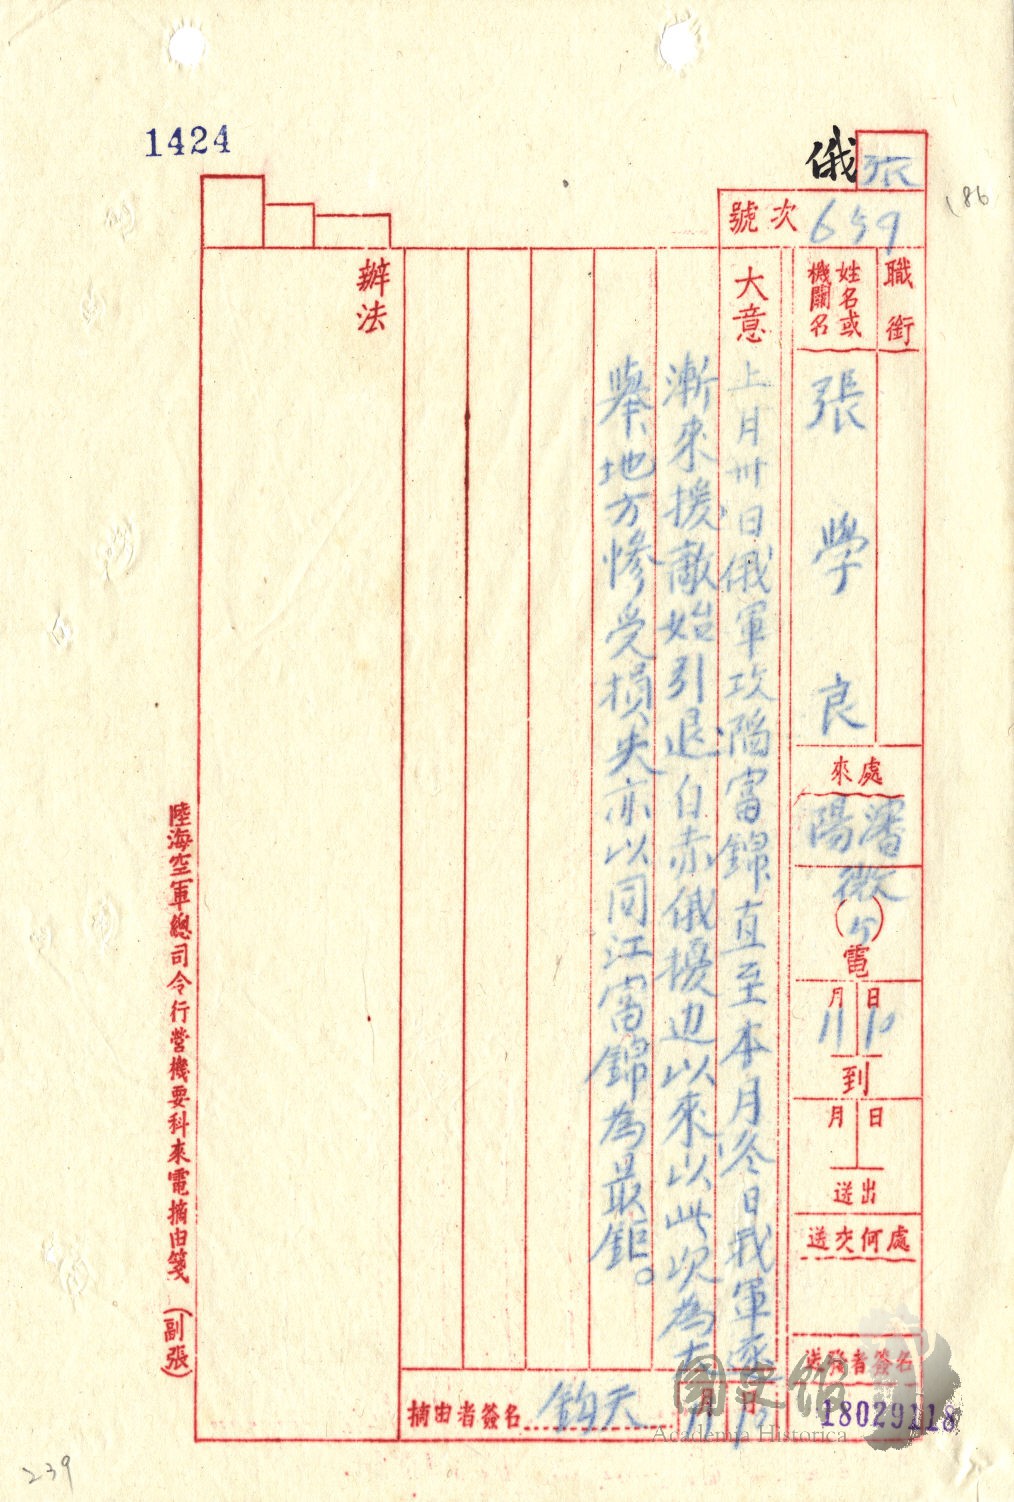 1424
俄
張
186
號次 659
職銜
姓名或機關名
張學良
來處
瀋陽
微
電
月 日
11 12
到
月 日
送出
送交何處
送發者簽名
18029118
大意
上月卅日俄軍攻陷富錦直至本月冬日我軍逐
漸來援敵始引退自赤俄擾邊以來以此次為大
舉、地方慘受損失亦以同江富錦為最鉅。
辦法
摘由者簽名 鈞天 11月12日
陸海空軍總司令行營機要科來電摘由箋(副張)
國史館
Academia Historica
239